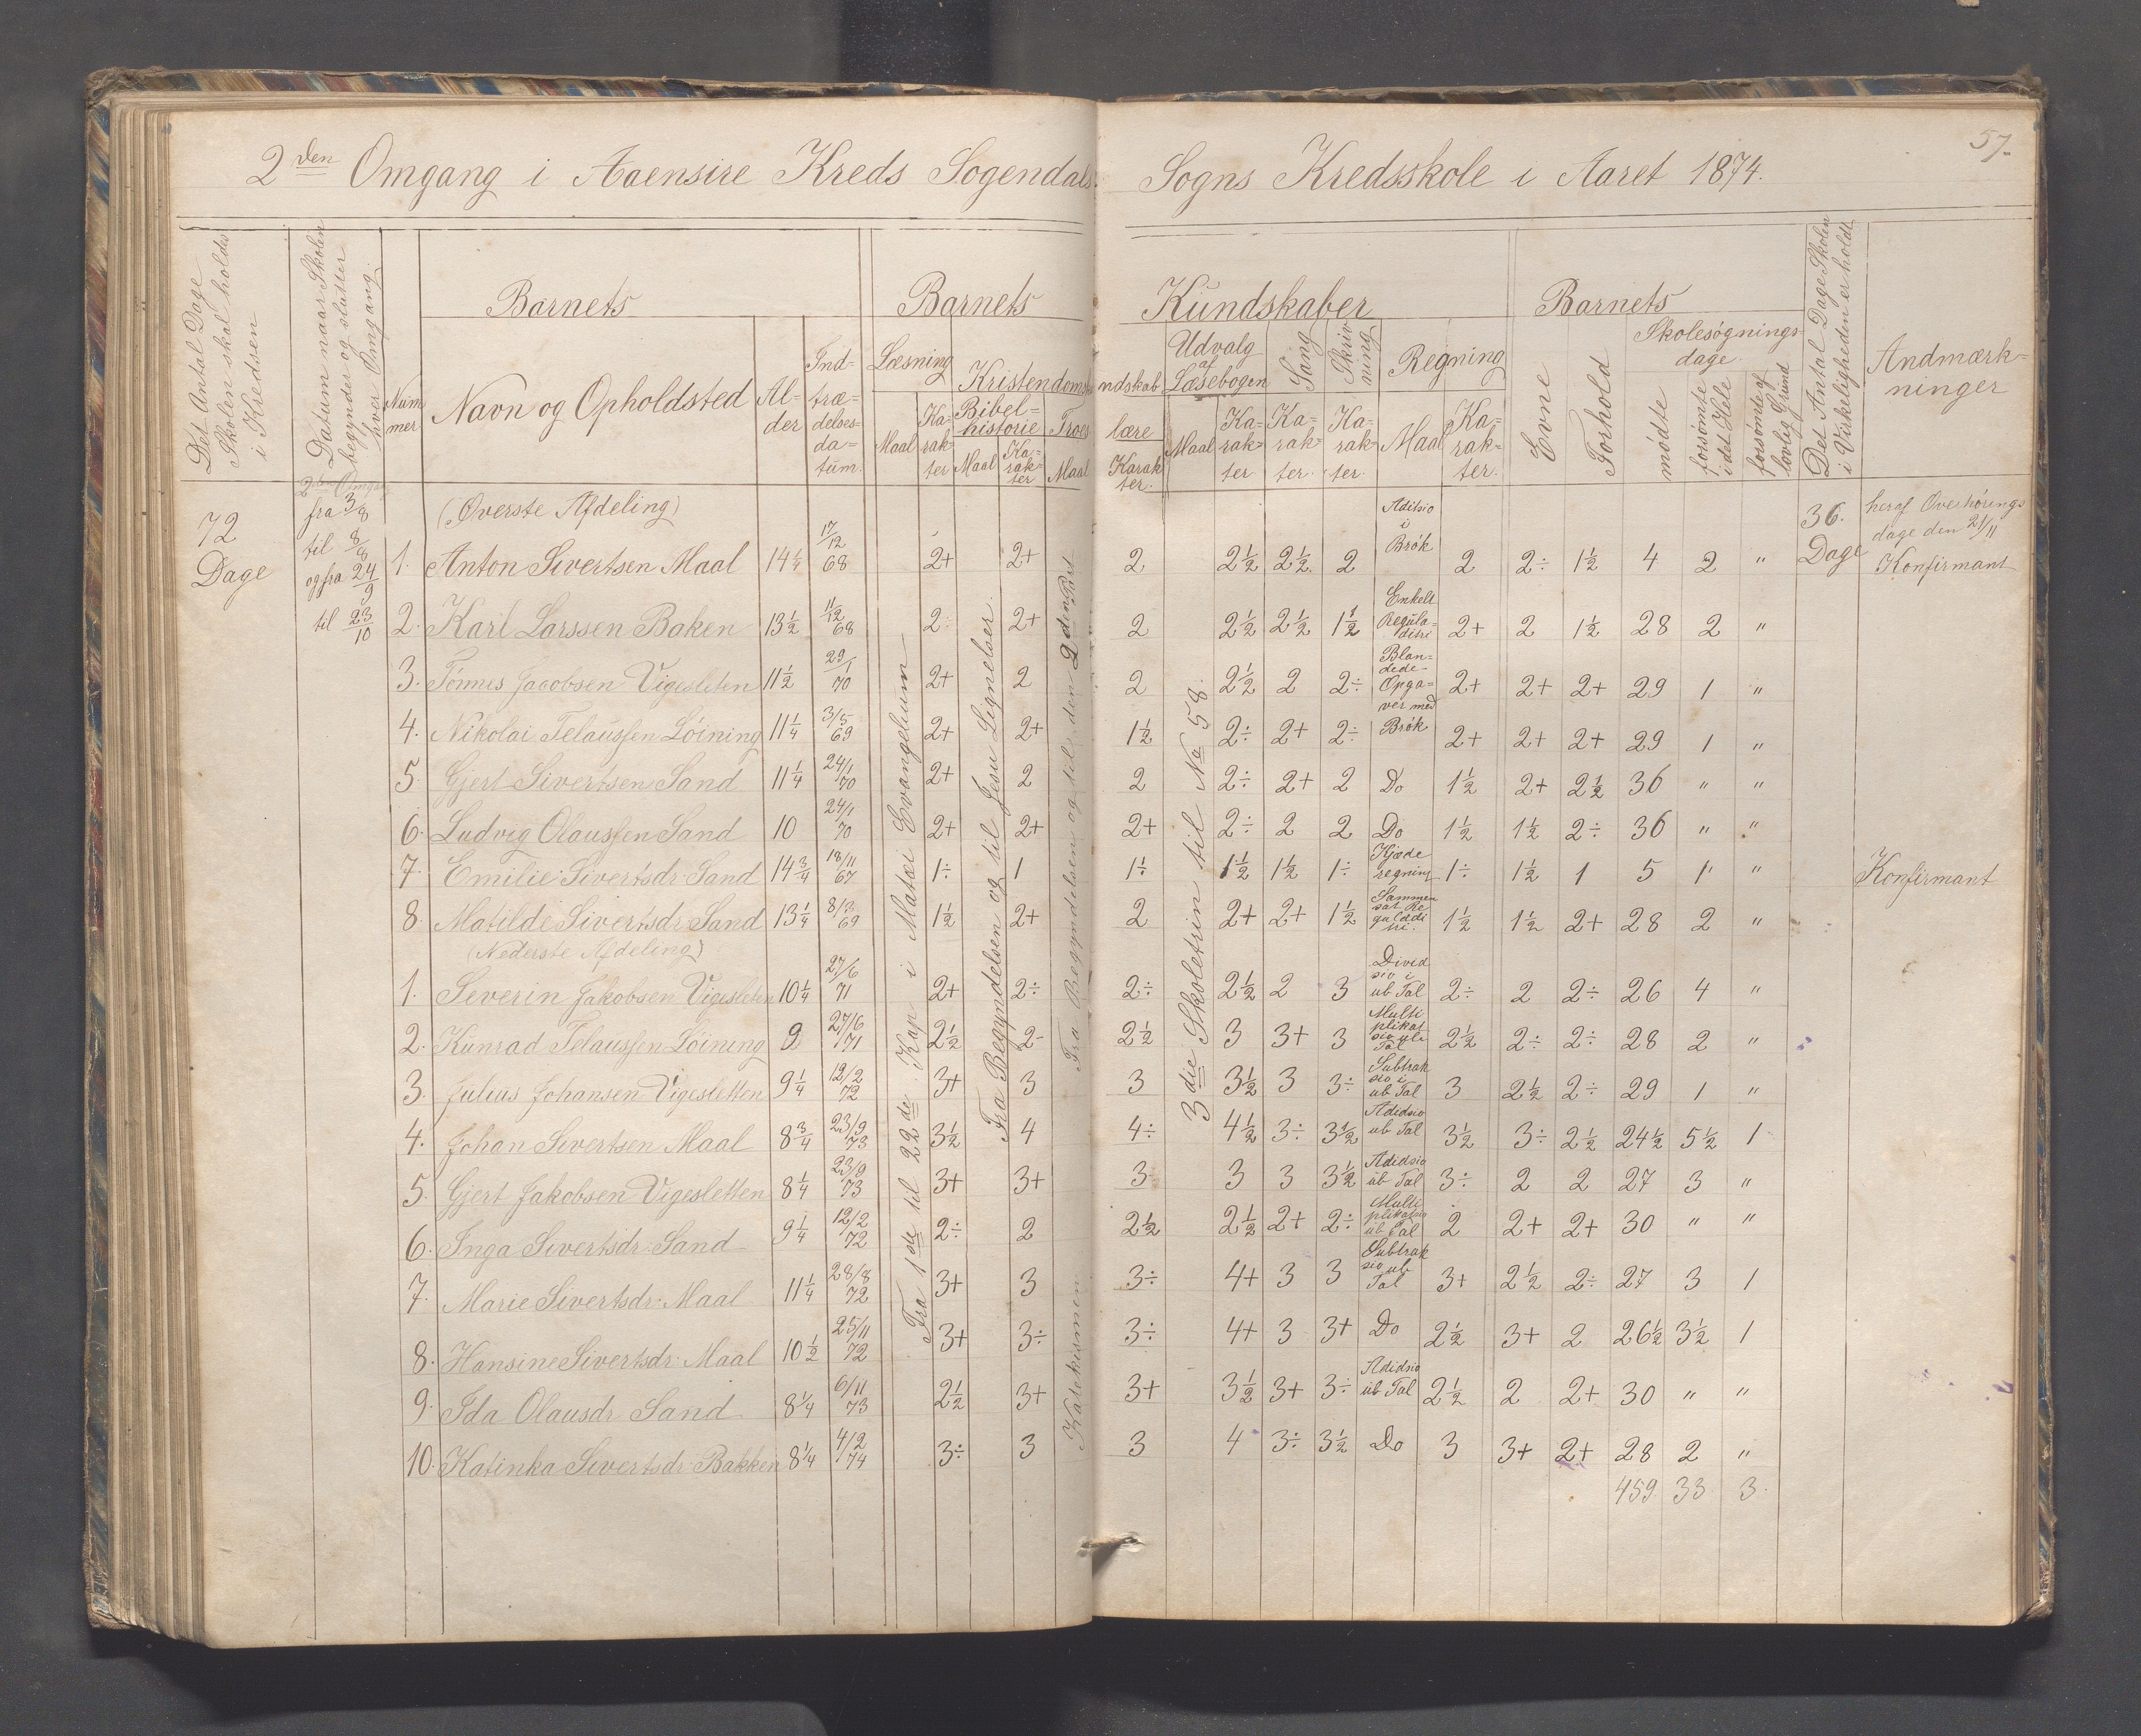 57.
2den Omgang i Aaensire Kreds Sogendals Sogns Kredsskole i Aaret 1874.
Det Antal Dage Skolen skal holdes i Kredsen
Datum naar Skolen begynder og slutter hver Omgang.
Nummer
Barnets
Navn og Opholdsted
Alder
Indtrædelsesdatum.
Barnets Kundskaber
Læsning
Maal
Karakter
Kristendomskundskab
Bibelhistorie
Maal
Karakter
Troeslære
Maal
Karakter.
Udvalg af Læsebogen
Maal
Karakter
Sang
Karakter.
Skrivning
Karakter.
Regning
Maal
Karakter.
Barnets
Evne
Forhold
Skolesøgningsdage.
mødte
forsømte i det Hele
forsømte af lovlig Grund
Det Antal Dage Skolen i Virkeligheden er holdt
Andmærkninger
72 Dage
2den Omgang
fra 3/8
til 8/8
og fra 24/9
til 23/10
36. Dage
heraf Overhørings
dage den 2/11
Fra 1de til 22de Kap i Matæi Evangelium
Fra Begyndelsen og til Jesu Lignelser.
Fra Begyndelsen og til den 2den Part Katekismen
3die Skoletrin til No 58.
(Øverste Afdeling)
1. Anton Sivertsen Maal 14 1/4 17/12 68 2+ 2+ 2 2½ 2½ 2 Adidsio i Brøk 2 2÷ 1½ 4 2 " Konfirmant
2. Karl Larssen Baken 13½ 11/12 68 2÷ 2+ 2 2½ 2½ 1½ Enkelt Reguladitri 2+ 2 1½ 28 2 "
3. Tønnes Jacobsen Vigesleten 11½ 29/1 70 2+ 2 2 2½ 2 2÷ Blandede Opgaver med Brøk 2+ 2+ 2+ 29 1 "
4. Nikolai Telaussen Løining 11¼ 3/5 69 2+ 2+ 1½ 2÷ 2+ 2÷ 2+ 2+ 2+ 29 1 "
5. Gjert Sivertsen Sand 11¼ 24/1 70 2+ 2 2 2÷ 2+ 2 Do 1½ 2+ 2½ 36 " "
6. Ludvig Olaussen Sand 10 24/1 70 2+ 2+ 2+ 2÷ 2 2 Do 1½ 1½ 2÷ 36 " "
7. Emilie Sivertsdr Sand 14¾ 18/11 67 1÷ 1 1÷ 1½ 1½ 1÷ Kjæde regning 1÷ 1½ 1 5 1 " Konfirmant
8. Matilde Sivertsdr: Sand 13¼ 8/3 69 1½ 2+ 2 2+ 2+ 1½ Sammen sat Re 1½ 1½ 2+ 28 2 "
(Nederste Afdeling)
1. Severin Jakobsen Vigesleten 10¼ 27/6 71 2+ 2÷ 2÷ 2½ 2 3 Dividsio i ub Tal 2÷ 2 2÷ 26 4 "
2. Kunrad Telaussen Løining 9 27/6 71 2½ 2- 2½ 3 3+ 3 Multiplikatsio ub Tal 2½ 2÷ 2÷ 28 2 "
3. Julius Johansen Vigesletten 9¼ 12/2 72 3+ 3 3 3½ 3 3÷ Subtraksio i ub Tal 3 2½ 2÷ 29 1 "
4. Johan Sivertsen Maal 8¾ 23/9 73 3½ 4 4÷ 4½ 3÷ 3½ Adidsio ub Tal 3½ 3÷ 2½ 24½ 5½ 1
5. Gjert Jakobsen Vigesletten 8¼ 23/9 73 3+ 3+ 3 3 3 3½ Adidsio ub Tal 3÷ 2 2 27 3 "
6. Inga Sivertsdr: Sand 9¼ 12/2 72 2÷ 2 2½ 2½ 2+ 2÷ Multiplikatsio ub Tal 2 2+ 2+ 30 " "
7. Marie Sivertsdr: Maal 11¼ 28/8 72 3+ 3 3÷ 4+ 3 3 Subtraksio ub Tal 3+ 2½ 2÷ 27 3 1
8. Hansine Sivertsdr: Maal 10½ 25/11 72 3+ 3÷ 3÷ 4+ 3 3+ Do 2½ 3+ 2 26½ 3½ 1
9. Ida Olausdr Sand 8¼ 6/11 73 2½ 3+ 3+ 3½ 3+ 3÷ Adidsio ub Tal 2½ 2 2+ 30 " "
10. Katinka Sivertsdr: Bakken 8¼ 4/2 74 3÷ 3 3 4 3÷ 3½ Do 3 3+ 2+ 28 2 "
459 33 3.